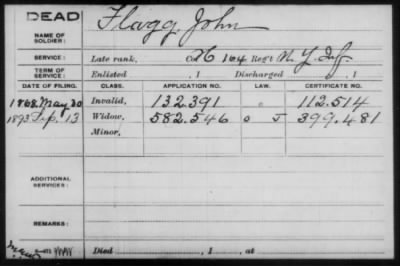 DEAD
NAME OF SOLDIER: Flagg, John
SERVICE: Late rank, H 164 Reg't N. Y. Inf.
TERM OF SERVICE: Enlisted , 1 Discharged , 1
DATE OF FILING. CLASS. APPLICATION NO. LAW. CERTIFICATE NO.
1868. May 20 Invalid, 132.391 112.514
1893 Sep. 13 Widow, 582.546 399.481
Minor,
ADDITIONAL SERVICES:
REMARKS:
Died , 1 , at